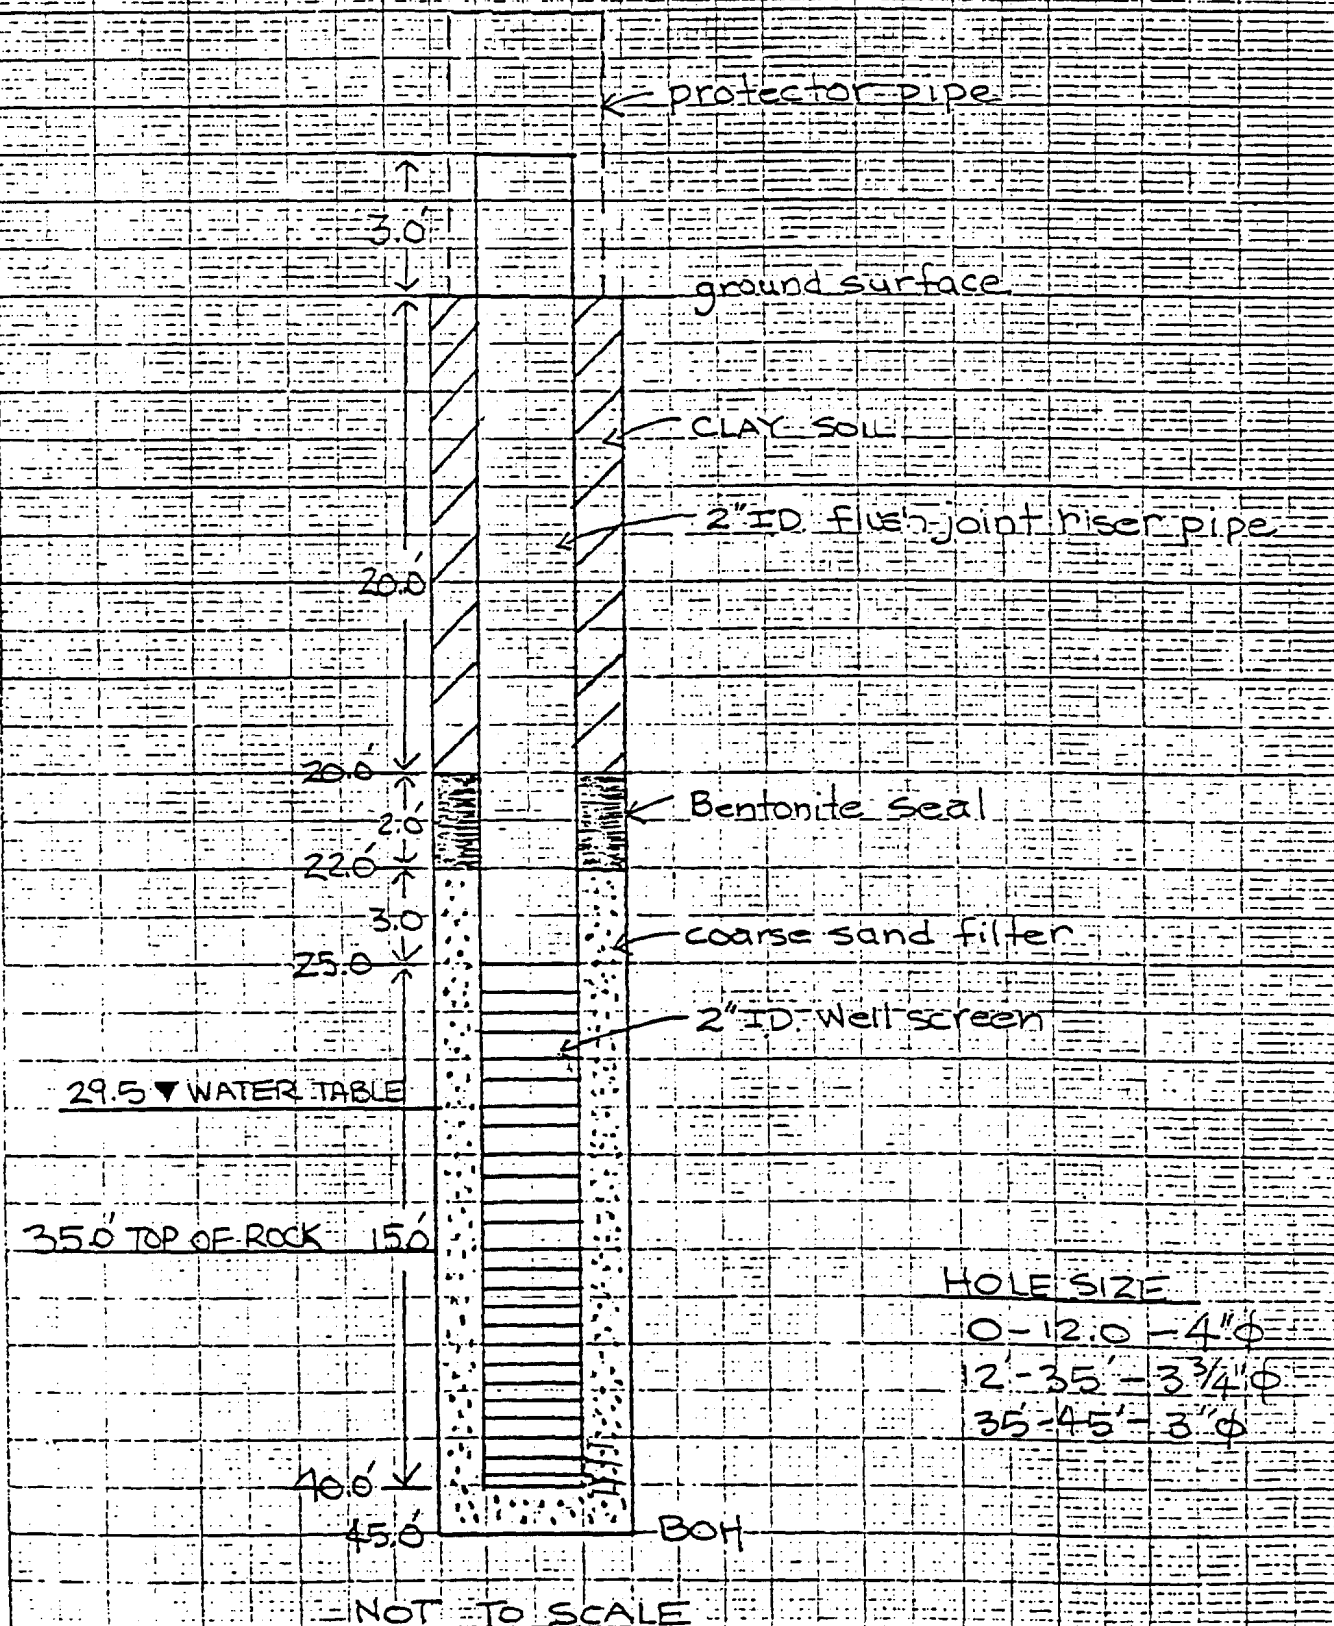 protector pipe
3.0'
ground surface
CLAY SOIL
2" ID flush-joint riser pipe
20.0'
20.0'
2.0'
Bentonite seal
22.0'
3.0
coarse sand filter
25.0
2" ID Well screen
29.5 ▼ WATER TABLE
35.0' TOP OF ROCK 15.0'
HOLE SIZE
0-12.0 - 4"ϕ
12'-35' - 3 3/4"ϕ
35'-45' - 3"ϕ
40.0'
45.0'
BOH
NOT TO SCALE